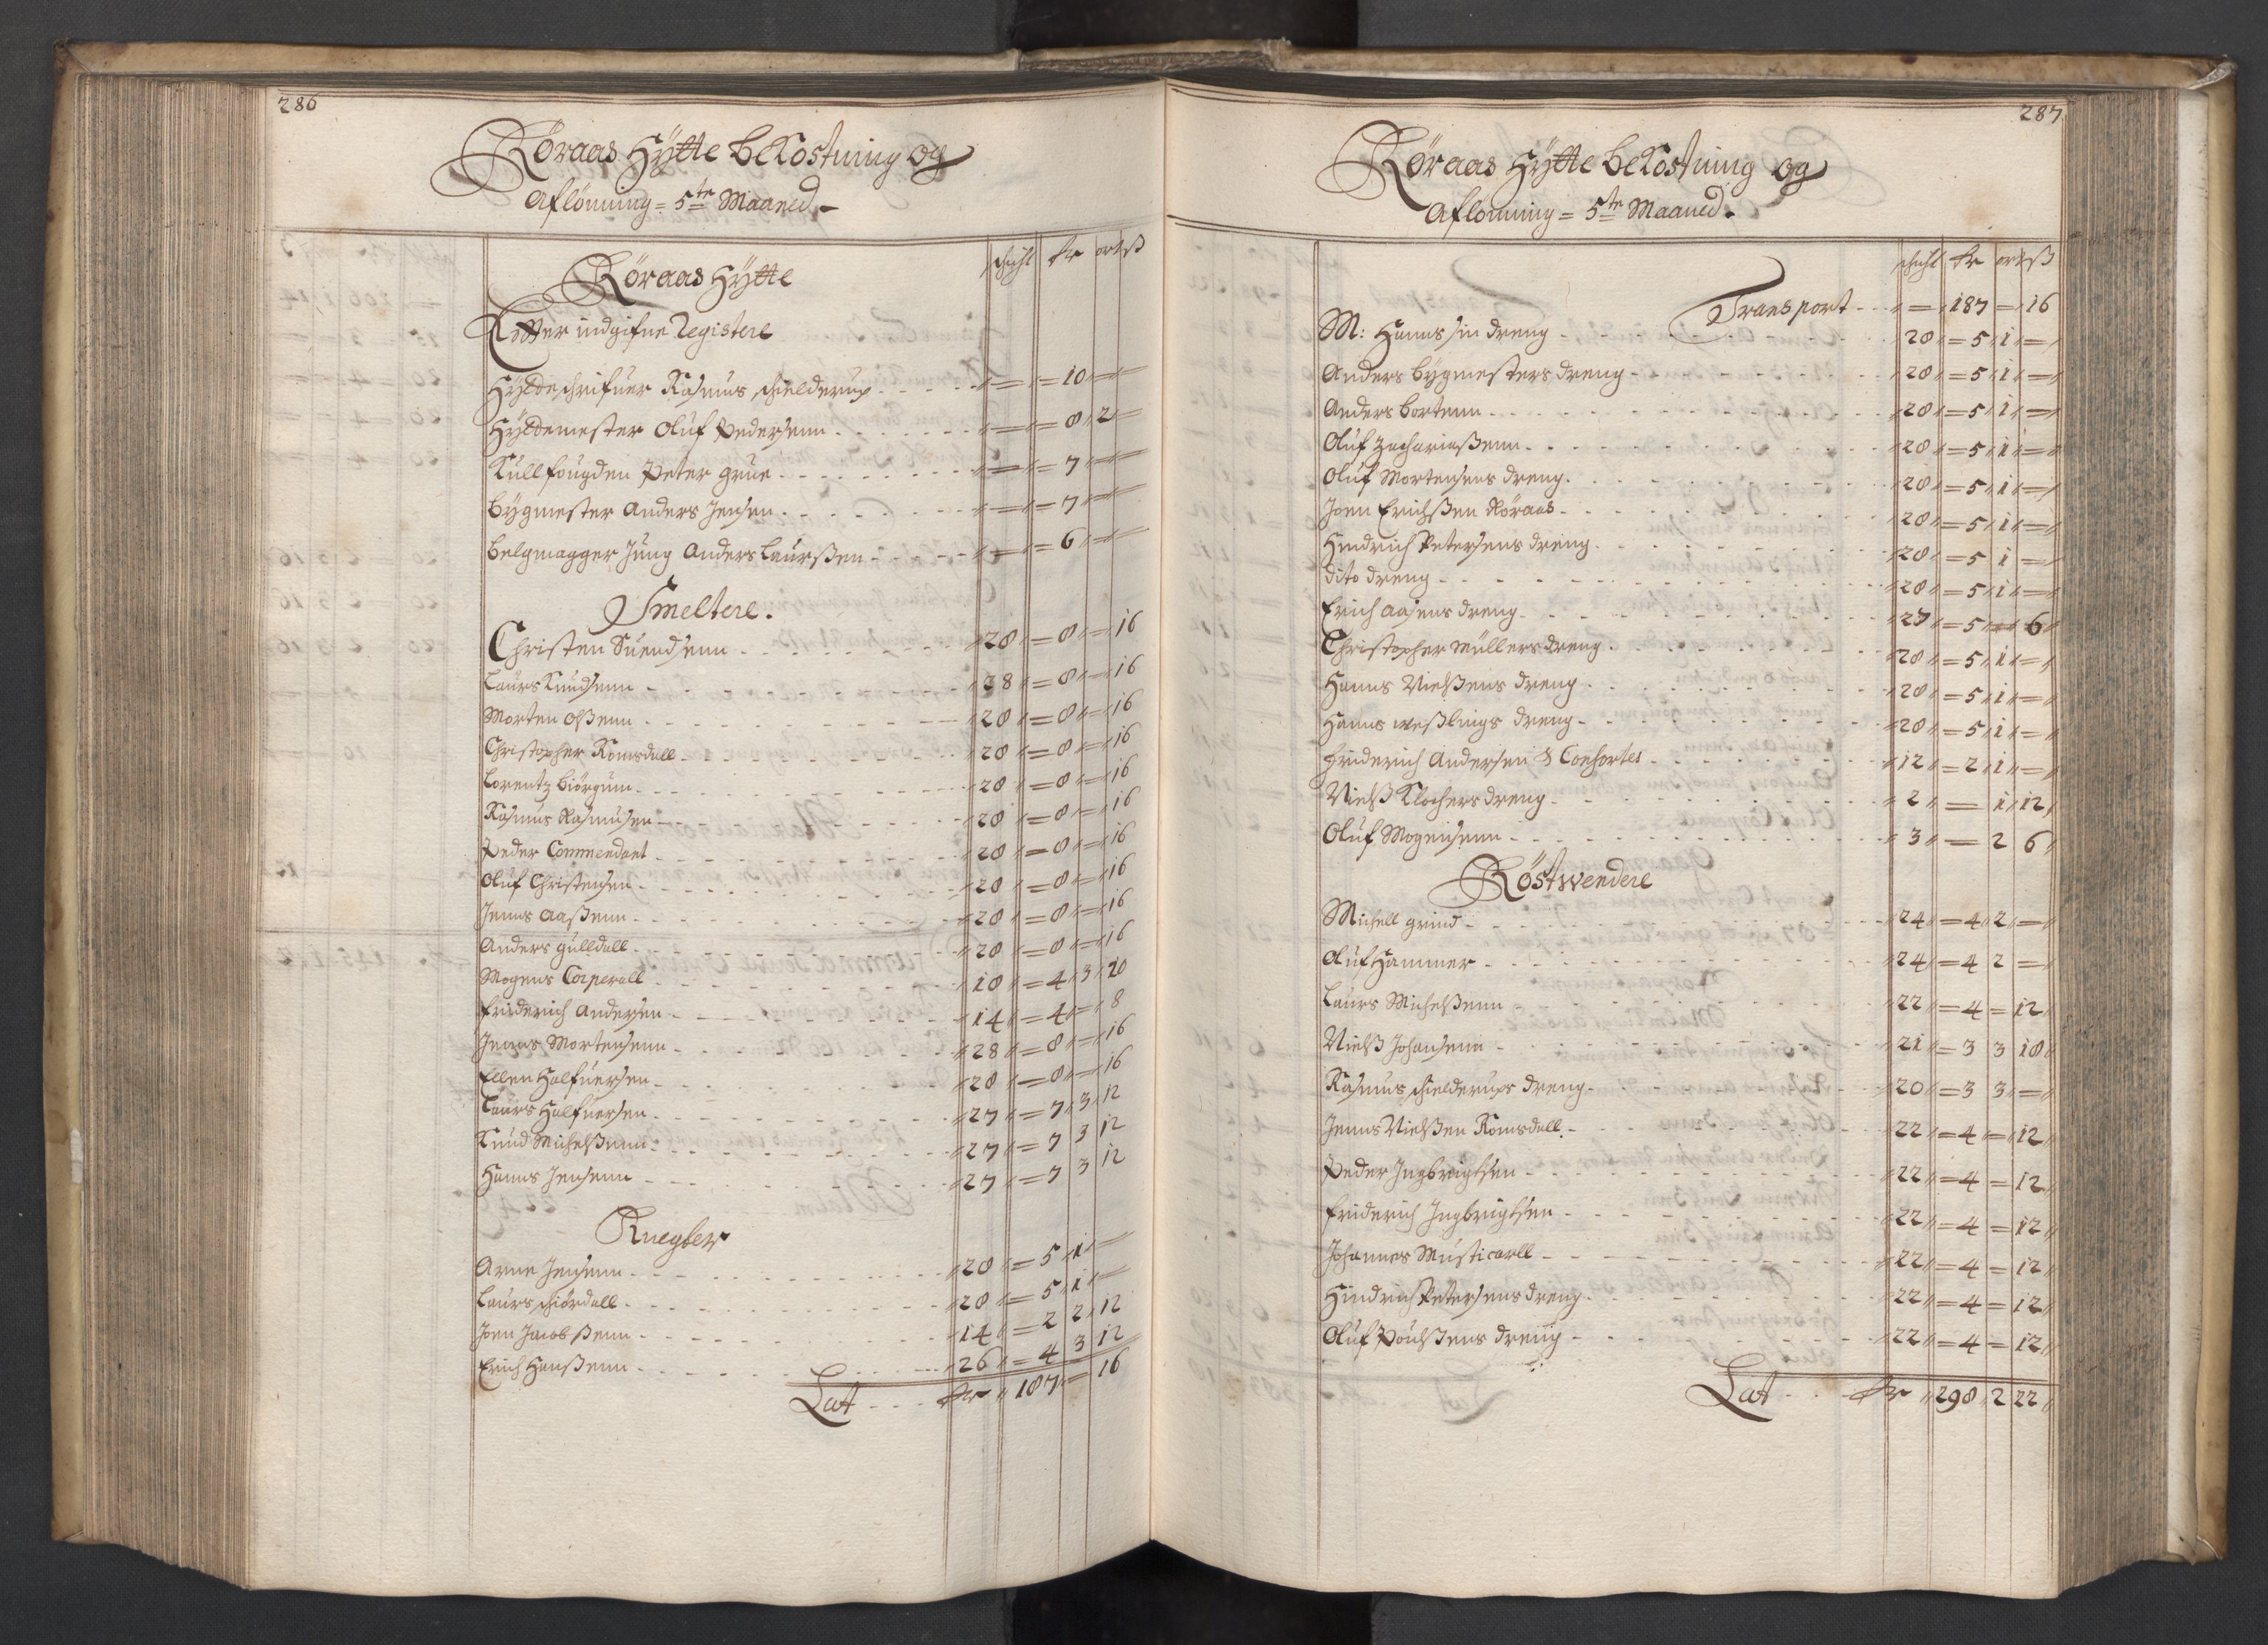 286
Röraas Hÿtte bekostning og
Aflönning = 5te Maaned
schicht Rdr ort ß
Röraas Hÿtte
Efter indgifne Registere
Hÿtteschrifuer Rasmus schielderup = 10
Hÿttemester Oluf Pedersenn = 8 2
Kullfougden Peter grue = 7
bÿgmester Anders Jensen = 7
belgmagger Jung Anders Laurßen = 6
Smeltere.
Christen Suendsenn 28 = 8 = 16
Laurs Knudsenn 28 = 8 = 16
Morten Oßenn 28 = 8 = 16
Christopher Romsdall 28 = 8 = 16
Lorentz biörgum 28 = 8 = 16
Rasmus Rasmusen 28 = 8 = 16
Peder Commendant 28 = 8 = 16
Oluf Christensen 28 = 8 = 16
Jenns Aaßenn 28 = 8 = 16
Anders gulldall 28 = 8 = 16
Mogens Corperall 18 = 4 3 20
friderich Andersen 14 = 4 = 8
Jenns Mortensenn 28 = 8 = 16
Ellen Halfuersen 28 = 8 = 16
Laurs Halfuersen 27 = 7 3 12
Knud Michelßenn 27 = 7 3 12
Hanns Jensenn 27 = 7 3 12
Knegter
Arne Jensenn 28 = 5 1 =
Laurs schiördall 28 = 5 1 =
Joen Jacobßenn 14 = 2 2 12
Erich Hanßenn 26 = 4 3 12
Lat Rdr 187 = 16
287
Röraas Hÿtte bekostning og
Aflönning = 5te Maaned.
schicht Rdr ort ß
Transport = 187 = 16
M: Hanns sin dreng 28 = 5 1 =
Anders bÿgmesters dreng 28 = 5 1 =
Anders bortenn 28 = 5 1 =
Oluf Zachariaßenn 28 = 5 1 =
Oluf Mortensens dreng 28 = 5 1 =
Joen Erichßen Röraas 28 = 5 1 =
Hindrich Petersens dreng 28 = 5 1 =
dito dreng 28 = 5 1 =
Erich Aasens dreng 27 = 5 = 6
Christopher Müllers dreng 28 = 5 1 =
Hanns Nielßens dreng 28 = 5 1 =
Hanns weßlings dreng 28 = 5 1 =
friderich Andersen & Consortes 12 = 2 1 =
Nielß Klochers dreng 2 = 1 12
Oluf Mogensenn 3 = 2 6
Röstwendere
Michell grind 24 = 4 2 =
Oluf Hammer 24 = 4 2 =
Laurs Michelßenn 22 = 4 = 12
Nielß Johansenn 21 = 3 3 18
Rasmus schielderups dreng 20 = 3 3 =
Jenns Nielßen Romsdall 22 = 4 = 12
Peder Ingbrigtsen 22 = 4 = 12
friderich Ingbrigtsen 22 = 4 = 12
Johannes Musticarll 22 = 4 = 12
Hindrich Petersens dreng 22 = 4 = 12
Oluf Poulßens dreng 22 = 4 = 12
Lat Rdr 298 2 22